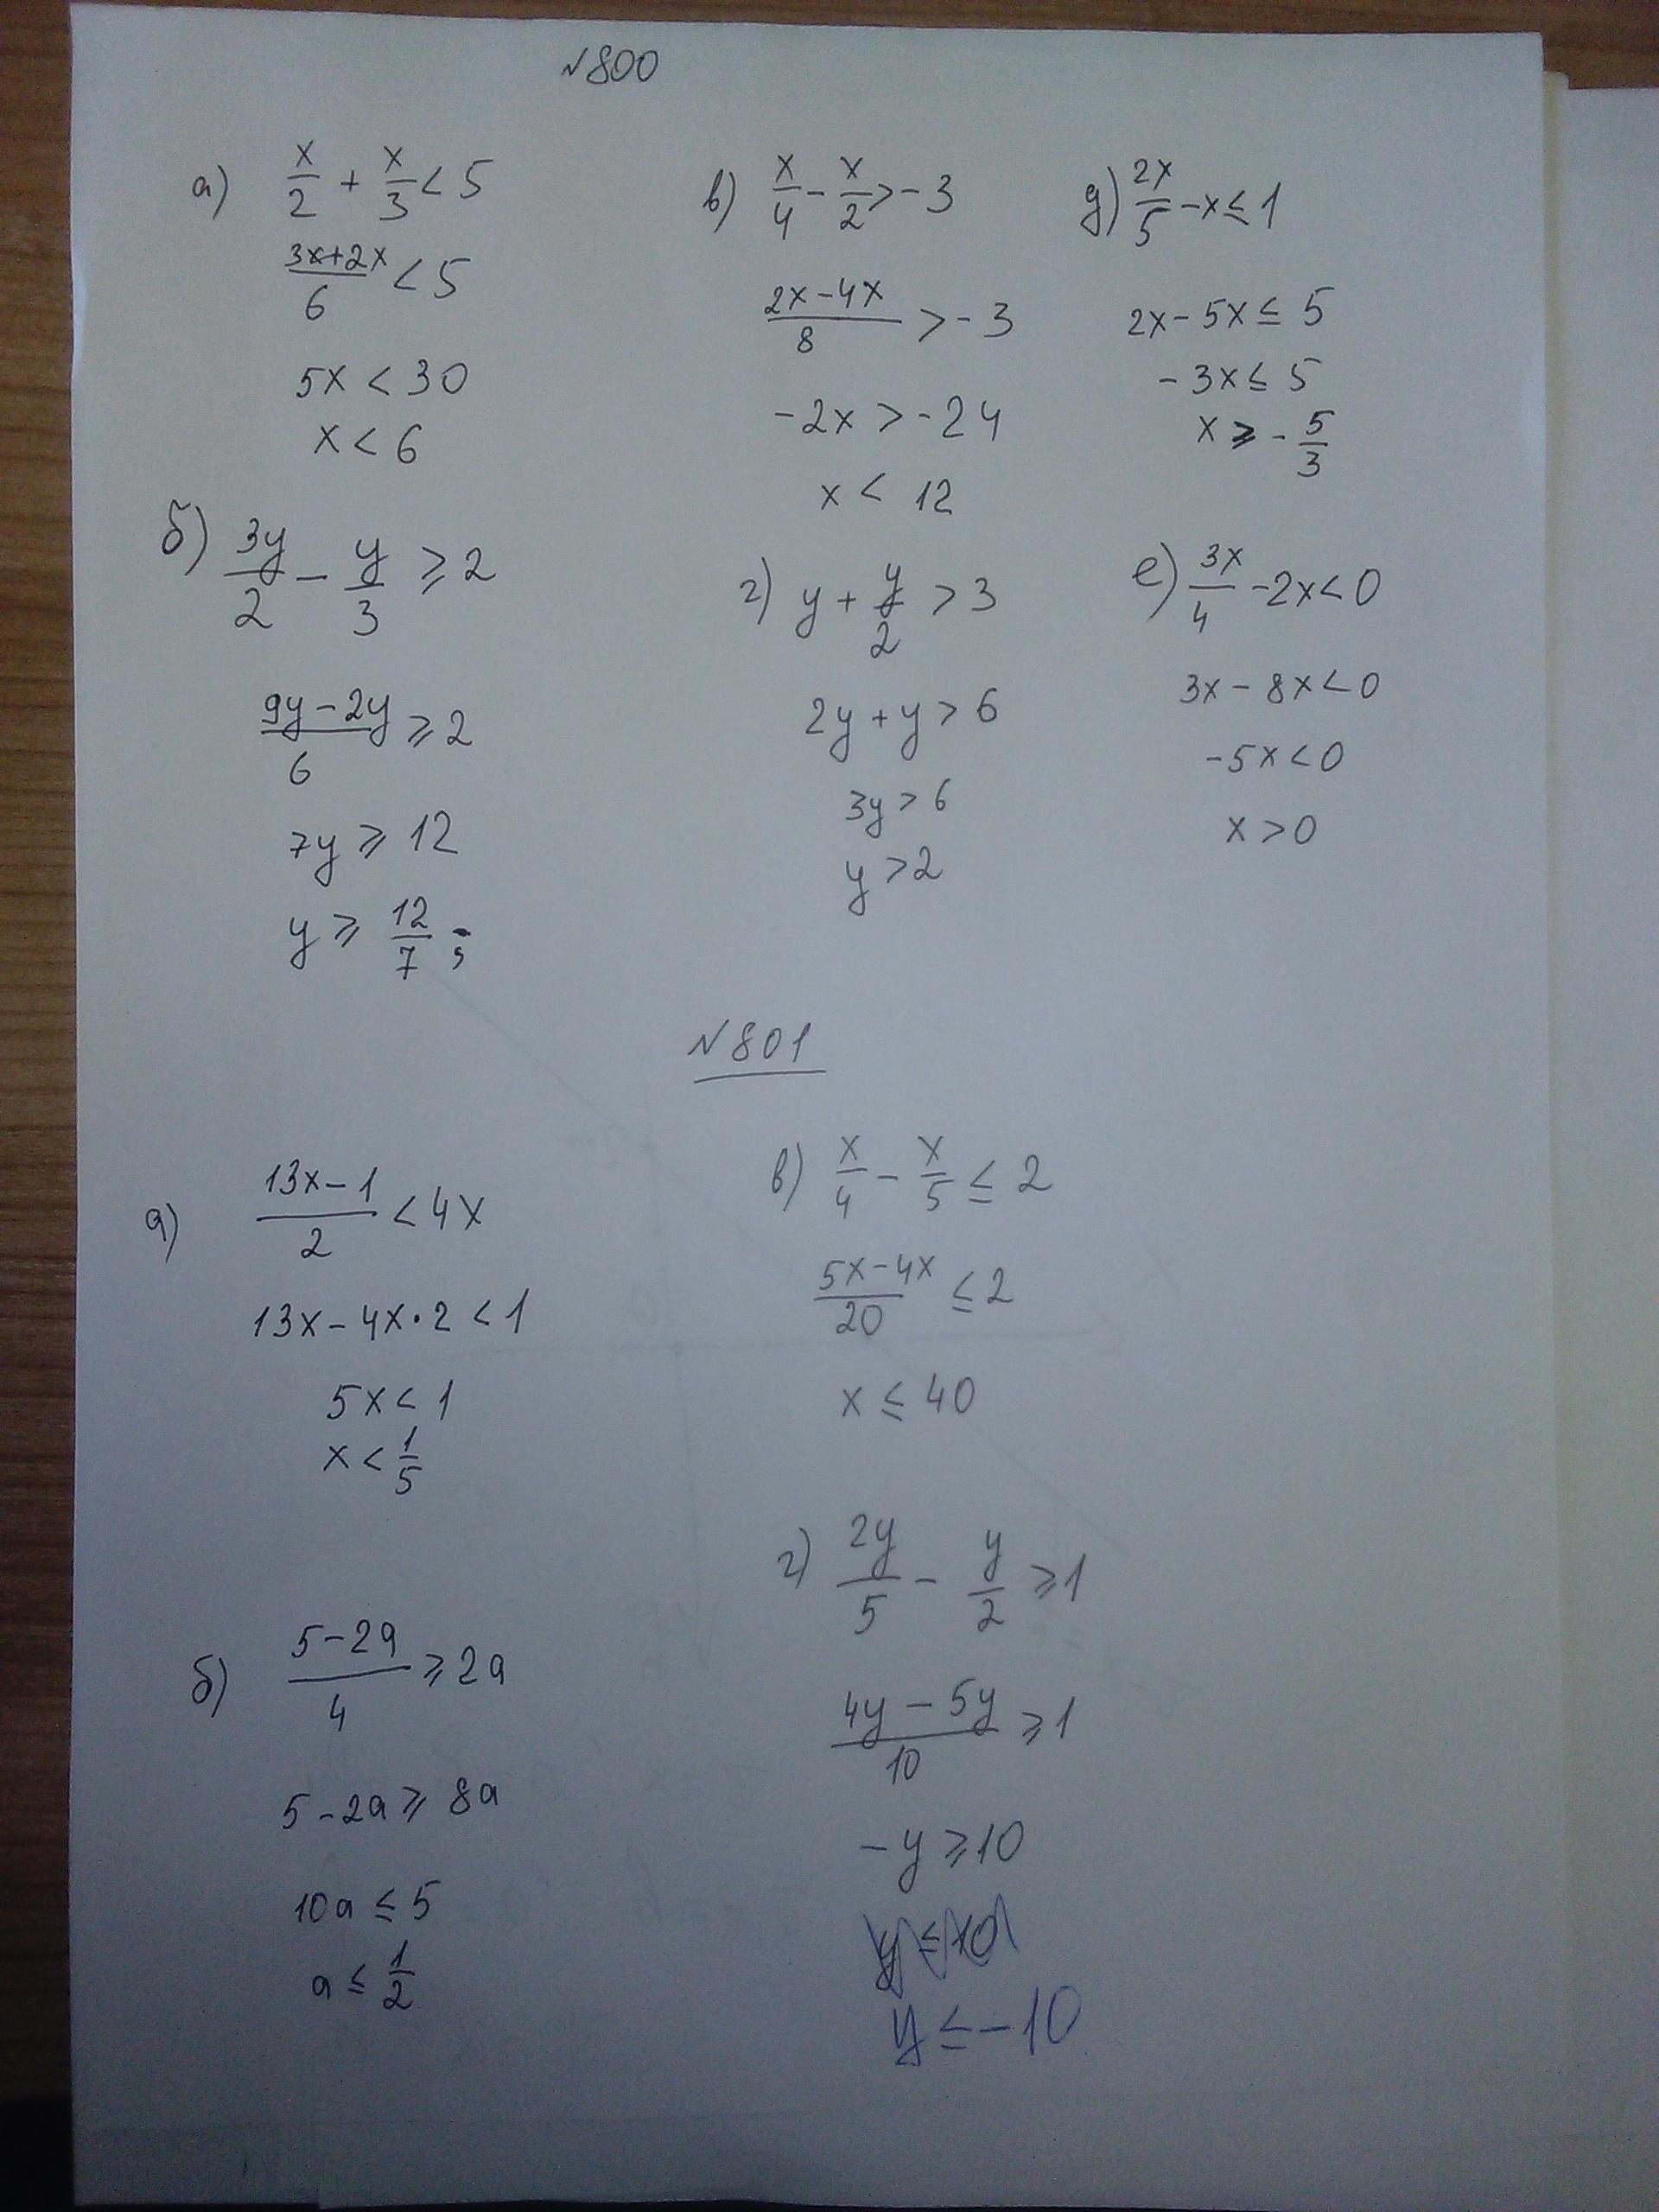 №800
а) x/2 + x/3 < 5
(3x+2x)/6 < 5
5x < 30
x < 6
б) 3y/2 - y/3 ⩾ 2
(9y-2y)/6 ⩾ 2
7y ⩾ 12
y ⩾ 12/7 ;
в) x/4 - x/2 > -3
(2x-4x)/8 > -3
-2x > -24
x < 12
г) y + y/2 > 3
2y + y > 6
3y > 6
y > 2
д) 2x/5 - x ≤ 1
2x - 5x ≤ 5
-3x ≤ 5
x ⩾ -5/3
е) 3x/4 - 2x < 0
3x - 8x < 0
-5x < 0
x > 0
№801
а) (13x-1)/2 < 4x
13x - 4x·2 < 1
5x < 1
x < 1/5
б) (5-2a)/4 ⩾ 2a
5 - 2a ⩾ 8a
10a ≤ 5
a ≤ 1/2
в) x/4 - x/5 ≤ 2
(5x-4x)/20 ≤ 2
x ≤ 40
г) 2y/5 - y/2 ⩾ 1
(4y-5y)/10 ⩾ 1
-y ⩾ 10
y ≤ -10